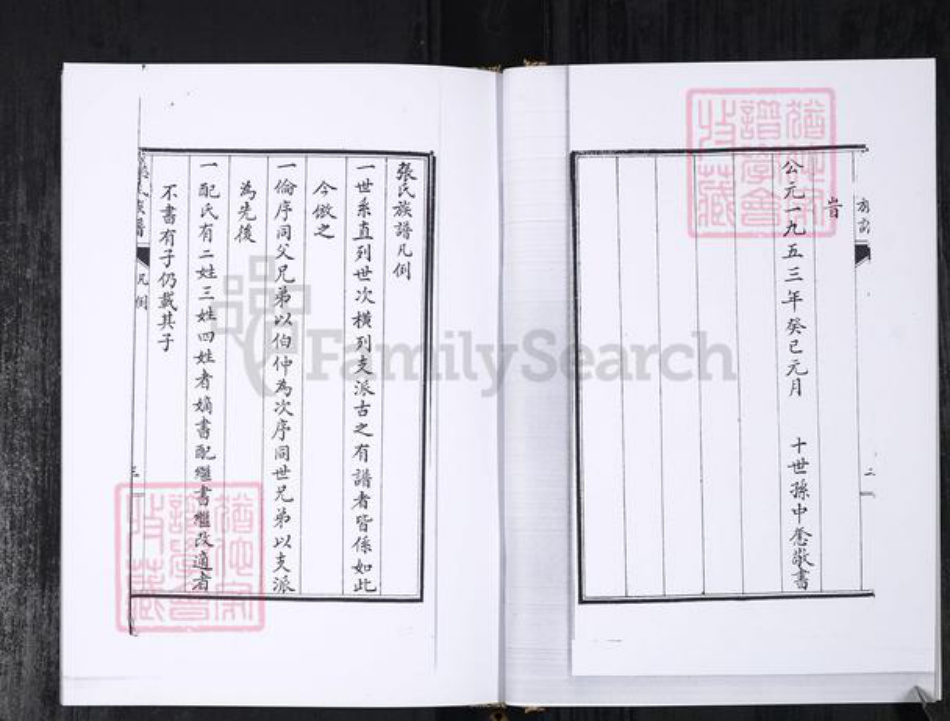 旹
公元一九五三年癸巳元月 十世孫中悆敬書
二
張氏族譜凡例
一世系直列世次橫列支派古之有譜者皆係如此
今倣之
一倫序同父兄弟以伯仲為次序同世兄弟以支派
為先後
一配氏有二姓三姓四姓者嫡書配繼書繼改適者
不書有子仍載其子
張氏族譜 凡例 三
譜學會
收藏
FamilySearch
譜學會
收藏